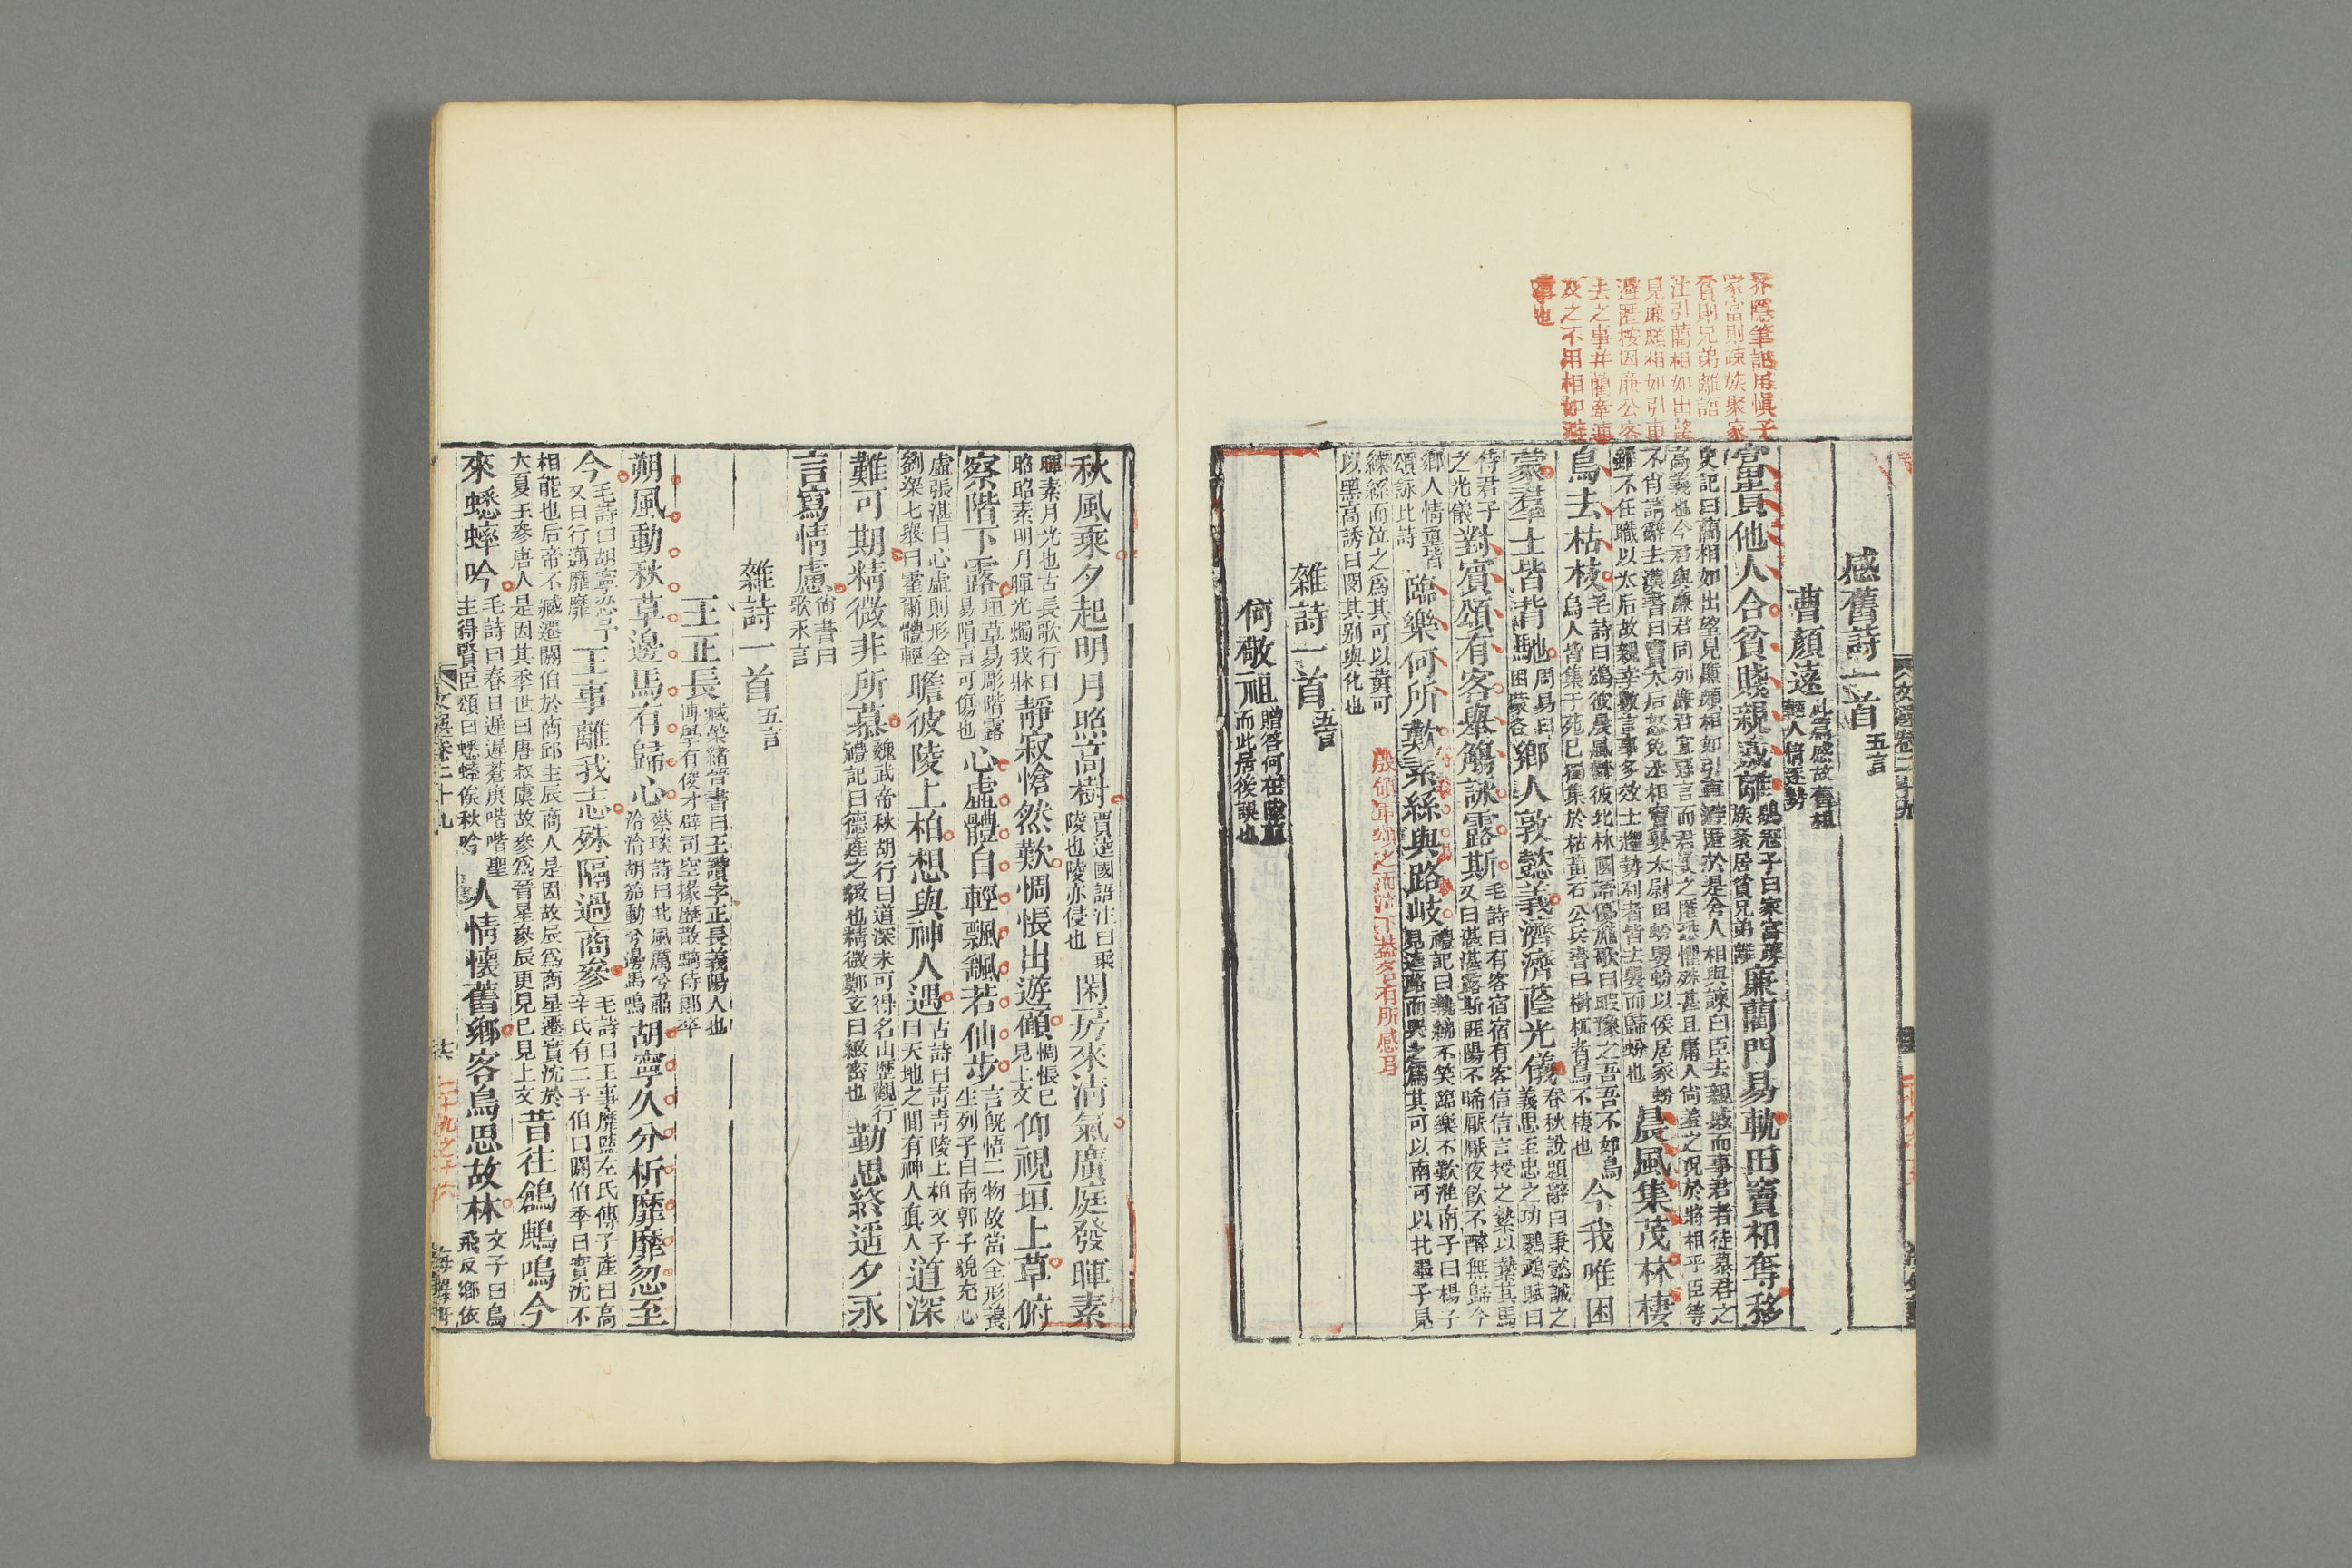 感舊詩一首五言
曹顏遠此篇感故舊相輕人情逐勢
富貴他人合貧賤親戚離鶡冠子曰家富疎族聚居貧兄弟離廉藺門易軌田竇相奪移
史記曰藺相如出望見廉頗相如引車避匿於是舍人相與諫曰臣去親戚而事君者徒慕君之
高義也今君與廉君同列廉君宣惡言而君畏之匿恐懼殊甚且庸人尚羞之況於將相乎臣等
不肖請辭去漢書曰竇太后怒免丞相竇嬰太尉田蚡嬰蚡以侯居家蚡
雖不任職以太后故親幸數言事多效士趨勢利者皆去嬰而歸蚡也晨風集茂林棲
鳥去枯枝毛詩曰鴥彼晨風鬱彼北林國語優施歌曰暇豫之吾吾不如鳥烏人皆集于苑已獨集於枯黃石公兵書曰樹枯者鳥不棲也今我唯困
蒙羣士皆背馳周易曰困蒙吝鄉人敦懿義濟濟蔭光儀春秋說題辭曰秉懿誠之義思至忠之功鸚鵡賦曰
侍君子之光儀對賓頌有客舉觴詠露斯毛詩曰有客宿宿有客信信言授之縶以縶其馬又曰湛湛露斯匪陽不晞厭厭夜飲不醉無歸今
鄉人情重皆頌詠此詩臨樂何所歎素絲與路岐禮記曰執紼不笑臨樂不歎淮南子曰楊子見逵路而哭之爲其可以南可以北墨子見
練絲而泣之爲其可以黃可以黑高誘曰閔其別與化也
雜詩一首五言
何敬祖贈荅何在陸前而此居後誤也
芥隱筆記用愼子
家富則疎族聚家
貧則兄弟離語
注引藺相如出望
見廉頗相如引車
避匿按因廉公客
去之事并藺牽連
及之不用相如避
車事也
殷領軍頌之流涕下葢各有所感耳
秋風乘夕起明月照高樹賈逵國語注曰乘陵也陵亦侵也閑房來清氣廣庭發暉素
暉素月光也古長歌行曰昭昭素明月暉光燭我牀靜寂愴然歎惆悵出遊顧惆悵已見上文仰視垣上草俯
察階下露垣草易彫階露易隕言可傷也心虛體自輕飄颻若仙步言旣悟二物故當全形養生列子曰南郭子貌充心
虛張湛曰心虛則形全劉梁七舉曰霍爾體輕瞻彼陵上柏想與神人遇古詩曰靑靑陵上柏文子曰天地之間有神人眞人道深
難可期精微非所慕魏武帝秋胡行曰道深未可得名山歷觀行禮記曰德產之緻也精微鄭玄曰緻密也勤思終遥夕永
言寫情慮尚書曰歌永言
雜詩一首五言
王正長臧榮緒晉書曰王讚字正長義陽人也博學有俊才辟司空掾歷散騎侍郎卒
朔風動秋草邊馬有歸心蔡琰詩曰北風厲兮肅泠泠胡笳動兮邊馬鳴胡寧久分析靡靡忽至
今毛詩曰胡寧忍予又曰行邁靡靡王事離我志殊隔過商參毛詩曰王事靡盬左氏傳子產曰高辛氏有二子伯曰閼伯季曰實沈不
相能也后帝不臧遷閼伯於商邱主辰商人是因故辰爲商星遷實沈於
大夏主參唐人是因其季世曰唐叔虞故參爲晉星參辰更見已見上文昔往鶬鶊鳴今
來蟋蟀吟毛詩曰春日遲遲蒼庚喈喈聖主得賢臣頌曰蟋蟀俟秋吟人情懷舊鄉客鳥思故林文子曰鳥飛反鄉依
文選卷二十九
二十九之十六